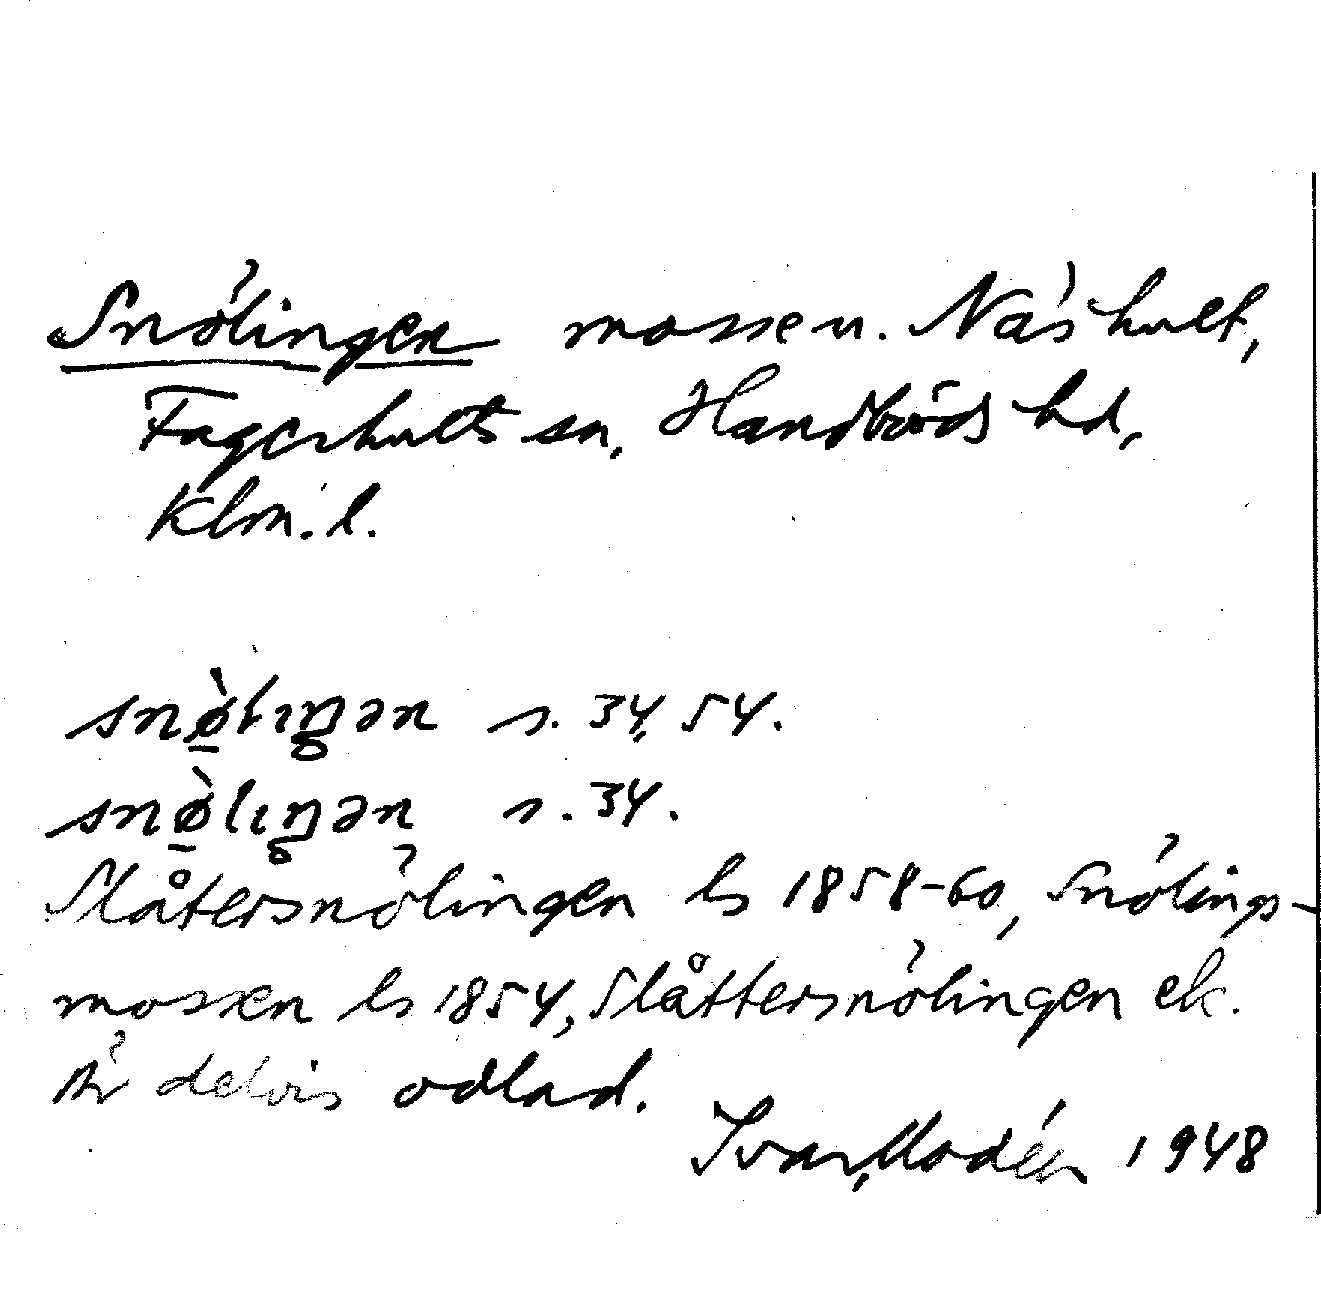 Snölingen mosse u. Näshult,
Fagerhults sn, Handbörds hd,
Klm. l.
snø̠̀lıŋən s. 34, 54.
snø̠̀lıŋən s. 34.
Slåtersnölingen ls 1858-60, Snölings-
mossen ls 1854, Slåttersnölingen ek.
Är delvis odlad.
Ivar Modéer 1948